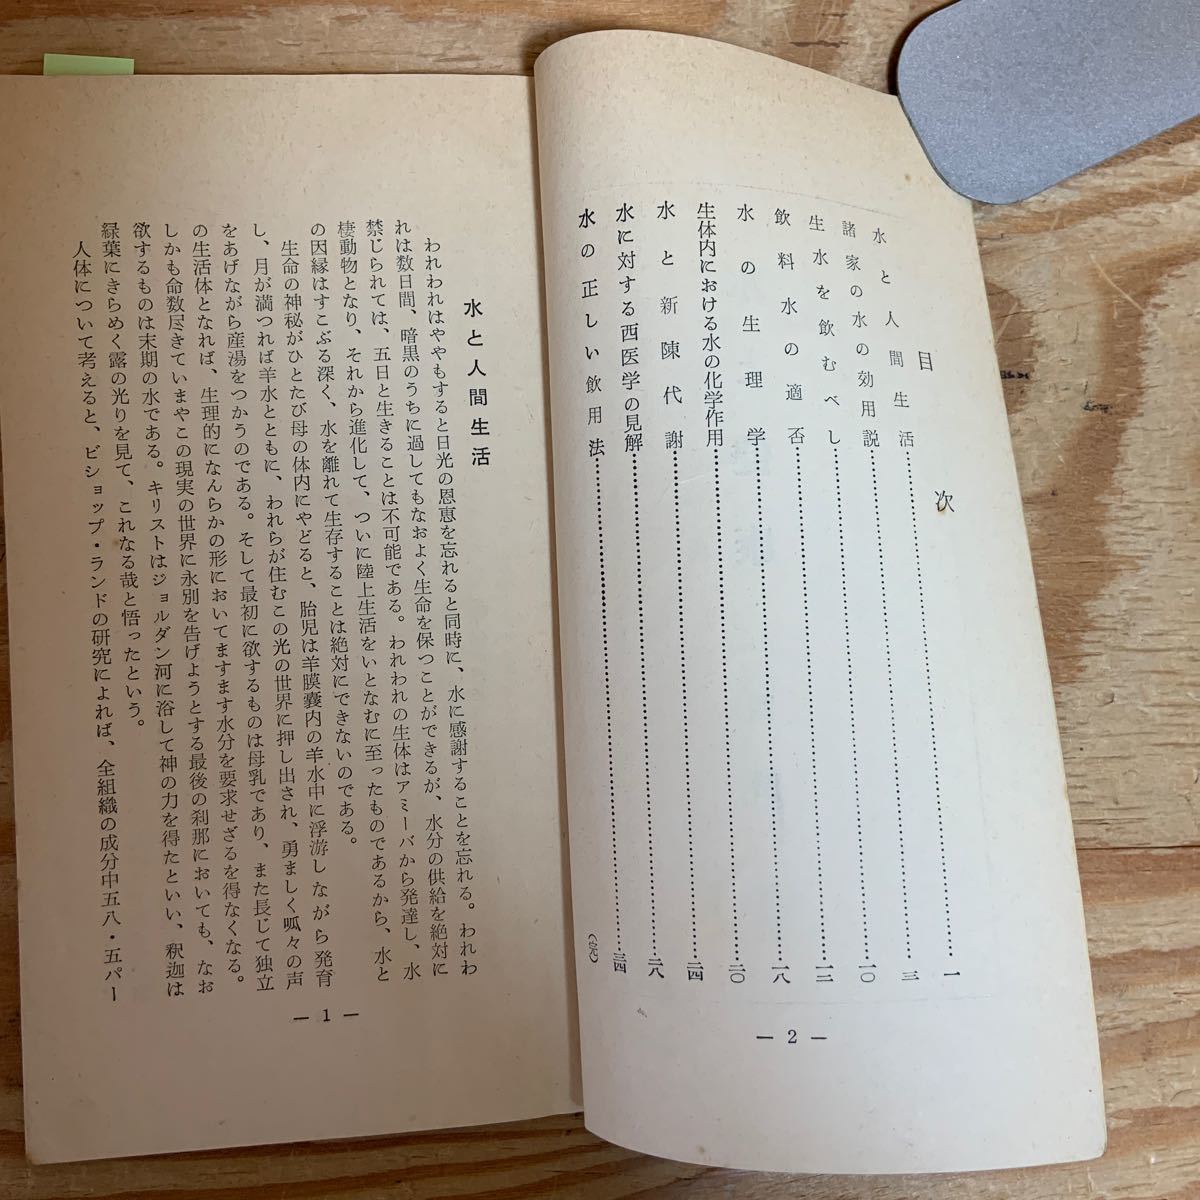 目次
水と人間生活……………一
諸家の水の効用説……………三
生水を飲むべし……………一〇
飲料水の適否……………一二
水の生理学……………一八
生体内における水の化学作用……………二〇
水と新陳代謝……………二四
水に対する西医学の見解……………二八
水の正しい飲用法……………三四
— 2 —
水と人間生活
われわれはややもすると日光の恩恵を忘れると同時に、水に感謝することを忘れる。われわ
れは数日間、暗黒のうちに過してもなおよく生命を保つことができるが、水分の供給を絶対に
禁じられては、五日と生きることは不可能である。われわれの生体はアミーバから発達し、水
棲動物となり、それから進化して、ついに陸上生活をいとなむに至ったものであるから、水と
の因縁はすこぶる深く、水を離れて生存することは絶対にできないのである。
生命の神秘がひとたび母の体内にやどると、胎児は羊膜嚢内の羊水中に浮游しながら発育
し、月が満つれば羊水とともに、われらが住むこの光の世界に押し出され、勇ましく呱々の声
をあげながら産湯をつかうのである。そして最初に欲するものは母乳であり、また長じて独立
の生活体となれば、生理的になんらかの形においてますます水分を要求せざるを得なくなる。
しかも命数尽きていまやこの現実の世界に永別を告げようとする最後の刹那においても、なお
欲するものは末期の水である。キリストはジョルダン河に浴して神の力を得たといい、釈迦は
緑葉にきらめく露の光りを見て、これなる哉と悟ったという。
人体について考えると、ビショップ・ランドの研究によれば、全組織の成分中五八・五パー
— 1 —